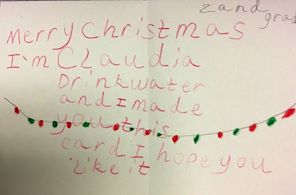 2and grad
Merry Christmas
I'm Claudia
Drinkwater
and I made
you this
card I hope you
like it